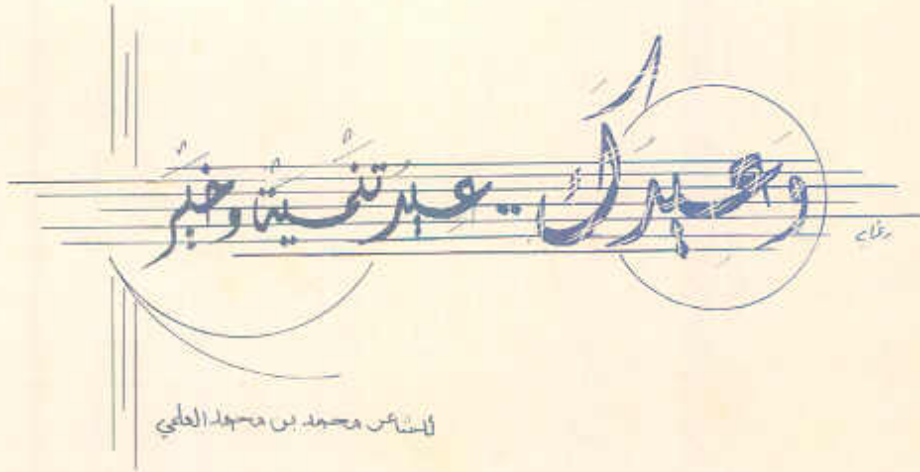 وَعيدكَ.. عيدُ تنميةٌ وخيرٌ
للشاعر محمد بن محمد العلمي